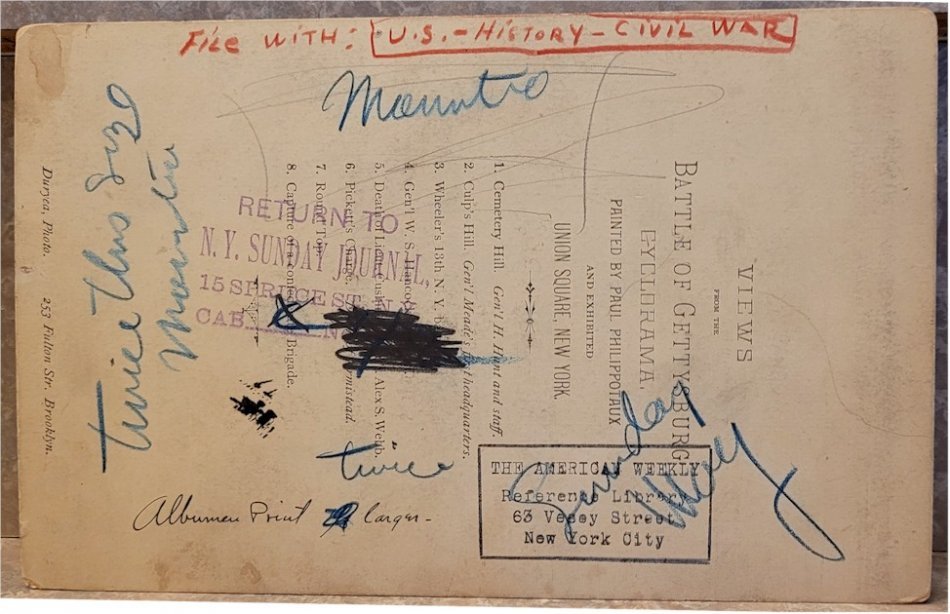 File with: U.S.-History-Civil War
Mounted
twice this size
Mounted
VIEWS
FROM THE
BATTLE OF GETTYSBURG
CYCLORAMA.
PAINTED BY PAUL PHILIPPOTAUX
AND EXHIBITED
UNION SQUARE, NEW YORK.
1. Cemetery Hill. Gen'l H. Hunt and staff.
2. Culp's Hill. Gen'l Meade's headquarters.
3. Wheeler's 13th N. Y.
4. Gen'l W. S. Hancock
5. Death of Alex S. Webb.
6. Pickett's Charge.
7. Round Top.
8. Capture of a Brigade.
Duryea, Photo. 253 Fulton Str. Brooklyn.
RETURN TO
N.Y. SUNDAY JOURNAL,
15 SPRUCE ST. N.Y.
CAB.
twice
Sunday
May
THE AMERICAN WEEKLY
Reference Library
63 Vesey Street
New York City
Albumen Print larger-